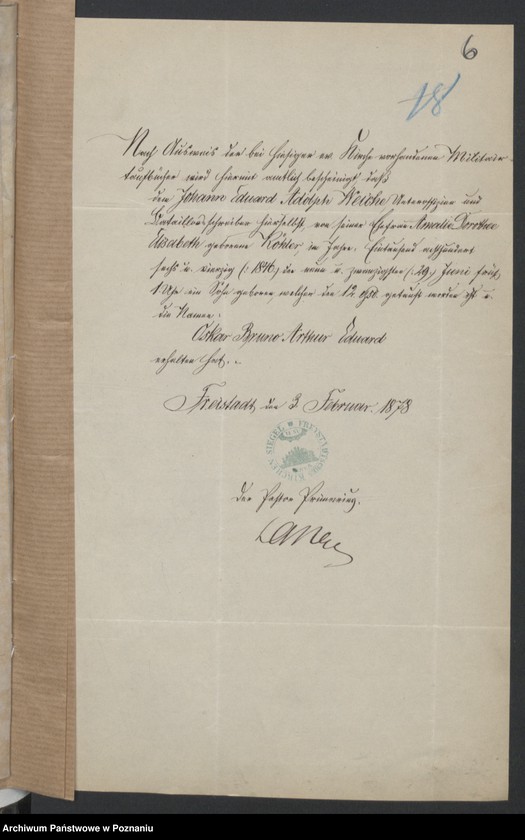 6
18
Nach Ausweis der bei hiesiger ev. Kirche vorhandenen Militair-
taufbücher wird hiermit amtlich bescheinigt, daß
dem Johann Eduard Adolph Weiche Unteroffizier und
Bataillonsschreiber hierselbst, von seiner Ehefrau Amalie Dorothea
Elisabeth geborene Köhler, im Jahre Eintausend achthundert
sechs u. vierzig (: 1846,) den neun u. zwanzigsten (: 29,) Juni früh
1 Uhr ein Sohn geboren, welcher den 12. getauft worden ist u.
die Namen:
Oskar Bruno Arthur Eduard
erhalten hat. -
Freistadt, den 3 Februar. 1878
SIEGEL FREISTADT KIRCHEN
Der Pastor Primarius.